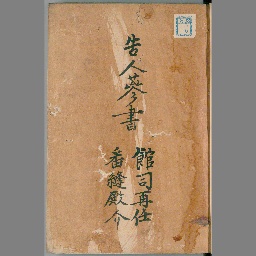 告人蔘書
館司再任
番縫殿介